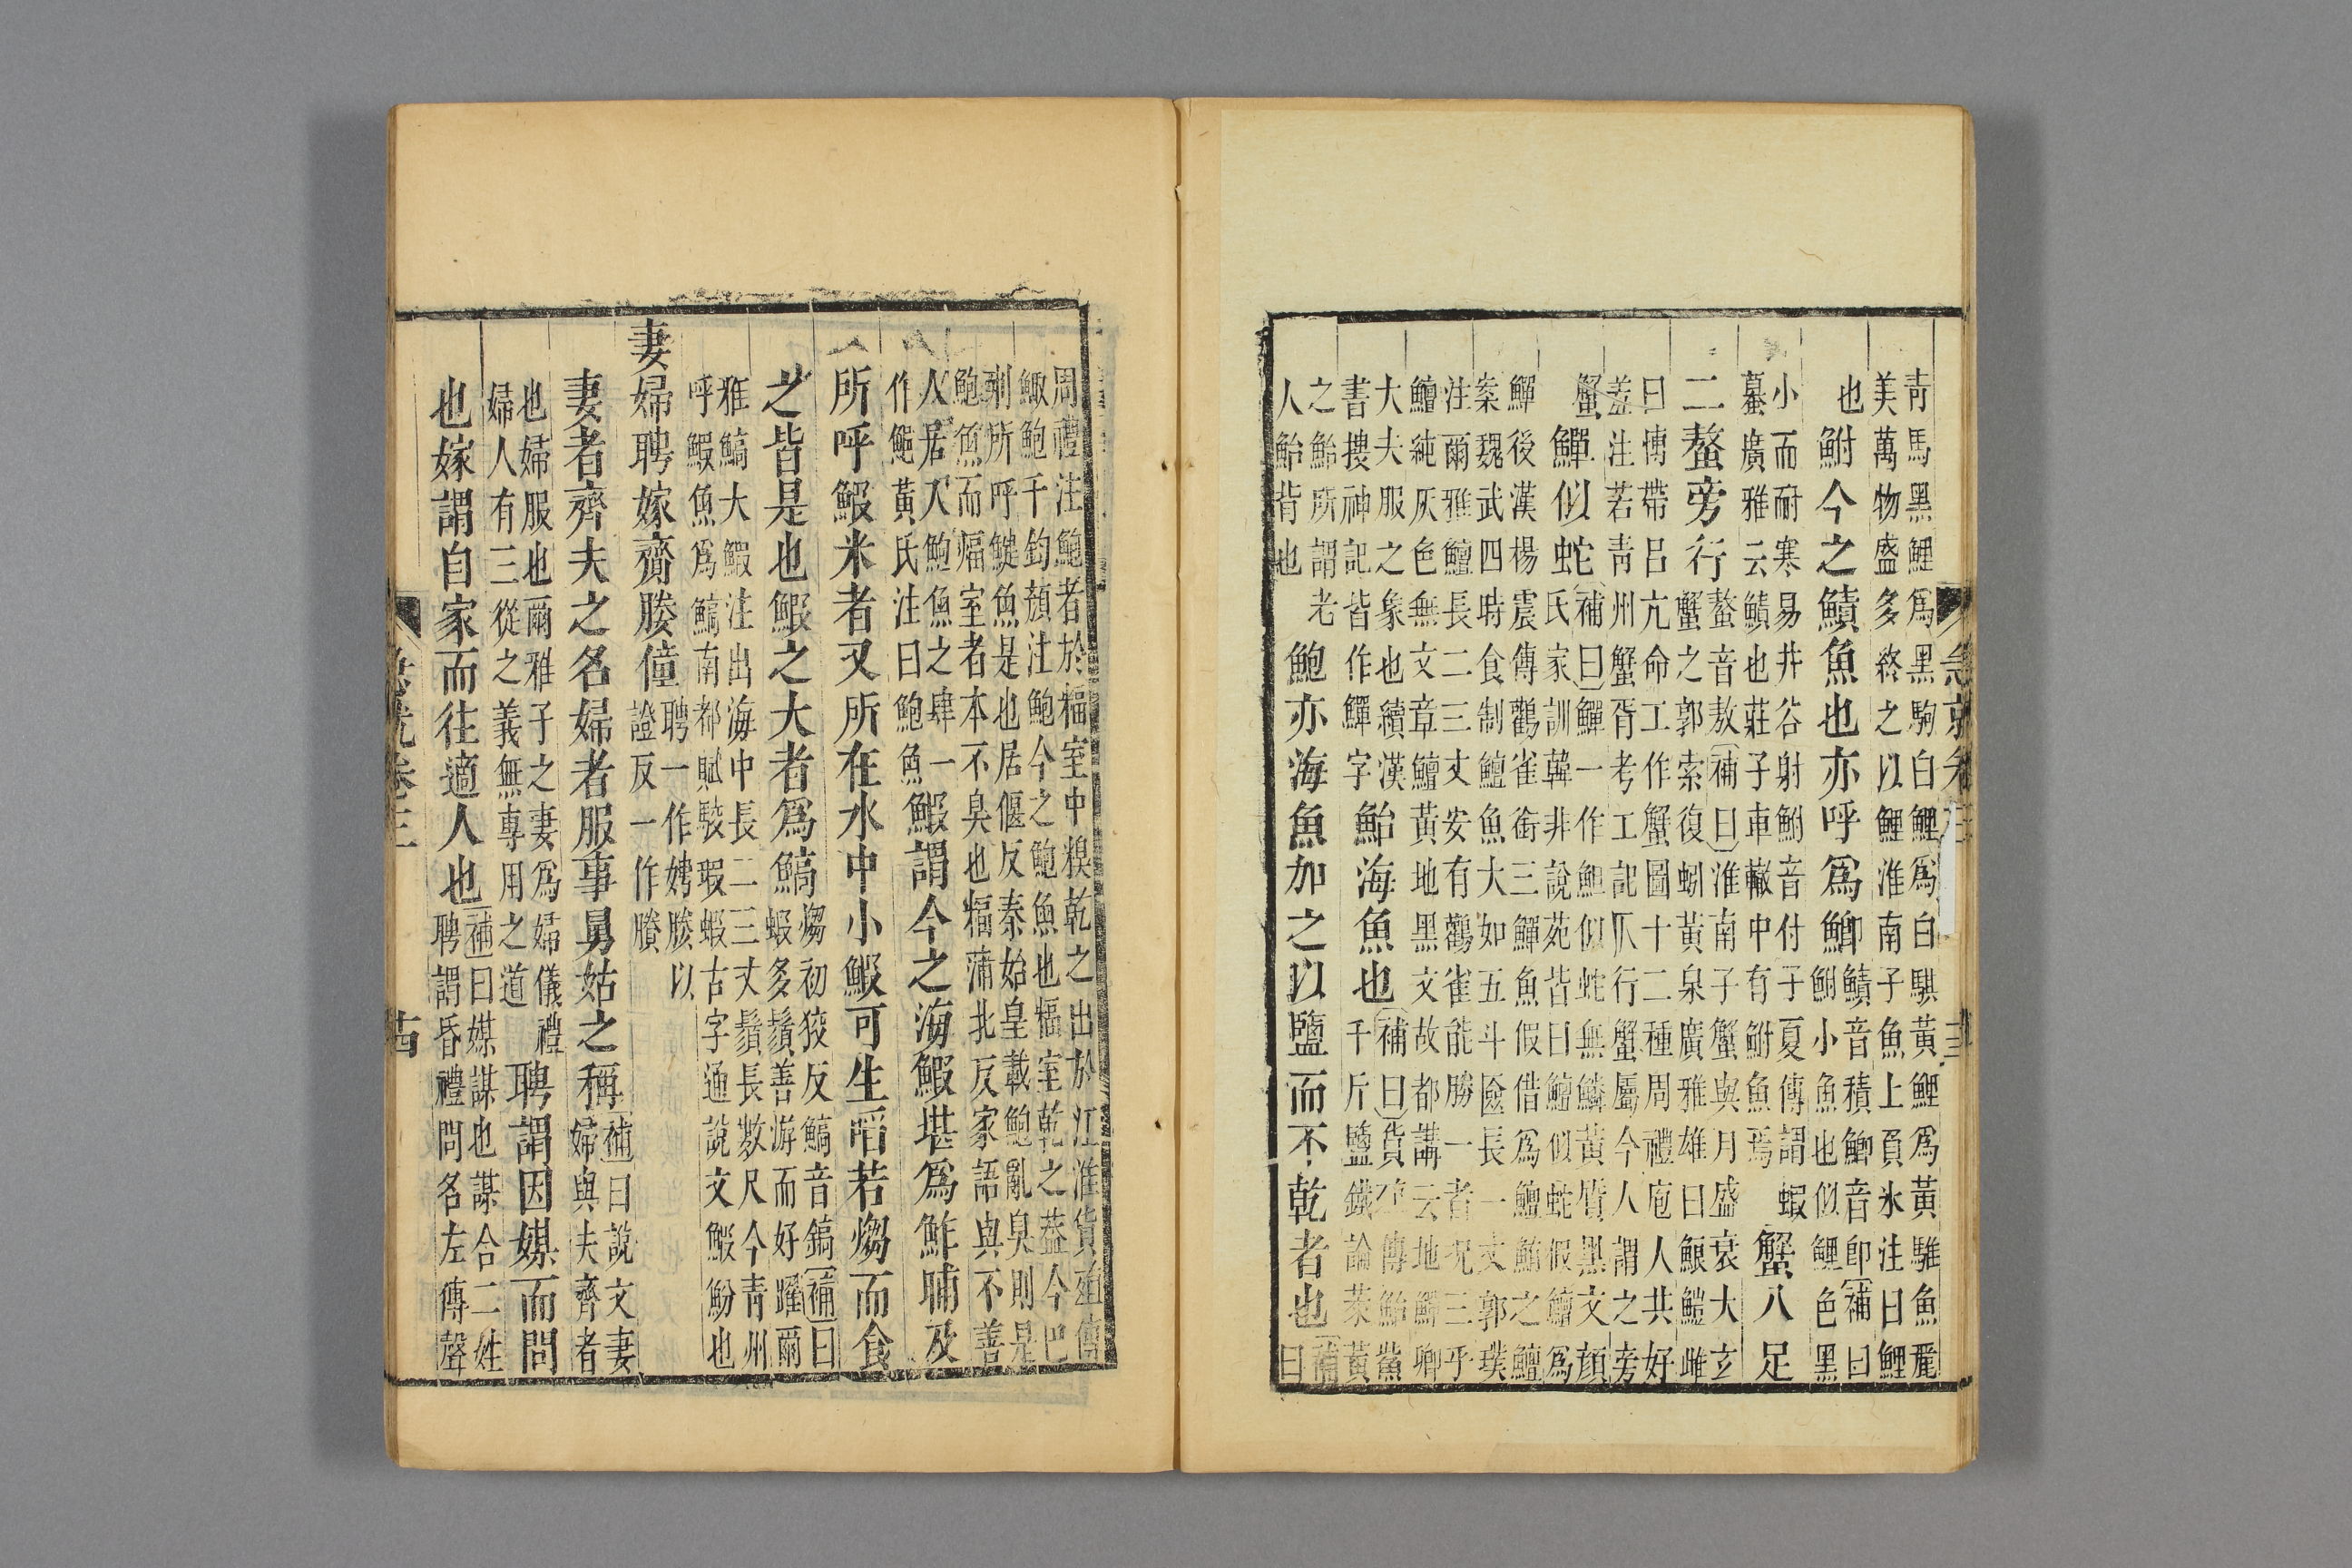 青馬黑鯉爲黑駒白鯉爲白騏黃鯉爲黃騅魚麗
美萬物盛多終之以鯉淮南子魚上負氷注曰鯉
也鮒今之鰿魚也亦呼爲鯽鰿音積鯽音卽補曰
鮒小魚也似鯉色黑
小而耐寒易井谷射鮒音付子夏傳謂蝦
蟇廣雅云鰿也莊子車轍中有鮒魚焉蟹八足
二螯旁行螯音敖補曰淮南子蟹與月盛衰大玄
蟹之郭索復蚓黃泉廣雅雄曰䱶鱧雌
曰博帶呂亢命工作蟹圖十二種周禮庖人共好
羞注若青州蟹胥考工記仄行蟹屬今人謂之旁
蟹鱓似蛇補曰鱓一作䱇似蛇無鱗黃質黑文顏
氏家訓韓非說苑皆曰鱣似蛇假鱣爲
鱓後漢楊震傳鸛雀銜三鱓魚假借爲鱣鮪之鱣
案魏武四時食制鱣魚大如五斗匳長一丈郭璞
注爾雅鱣長二三丈安有鸛雀能勝一者況三乎
鱣純灰色無文章鱓黃地黑文故都講云地鱓卿
大夫服之象也續漢
書搜神記皆作鱓字鮐海魚也補曰貨殖傳鮐鮆
千斤鹽鐵論萊黃
之鮐所謂老
人鮐背也鮑亦海魚加之以鹽而不乾者也補
曰
周禮注鮑者於楅室中糗乾之出於江淮貨殖傳
鯫鮑千鈞顏注鮑今之鮑魚也楅室乾之葢今巴
荆所呼鰎魚是也居偃反秦始皇載鮑亂臭則是
鮑魚而煏室者本不臭也煏蒲北反家語與不善
人居入鮑魚之肆一
作鮑黃氏注曰鮑魚鰕謂今之海鰕堪爲鮓脯及
所呼鰕米者又所在水中小鰕可生㗖若煼而食
之皆是也鰕之大者爲鰝煼初狡反鰝音鎬補曰
蝦多鬚善游而好躍爾
雅鰝大鰕注出海中長二三丈鬚長數尺今青州
呼鰕魚爲鰝南都賦駮瑕蝦古字通說文鰕魵也
妻婦聘嫁齎媵僮聘一作娉媵以
證反一作賸
妻者齊夫之名婦者服事舅姑之稱補曰說文妻
婦與夫齊者
也婦服也爾雅子之妻爲婦儀禮
婦人有三從之義無專用之道聘謂因媒而問
也嫁謂自家而往適人也補曰媒謀也謀合二姓
聘謂昏禮問名左傳聲